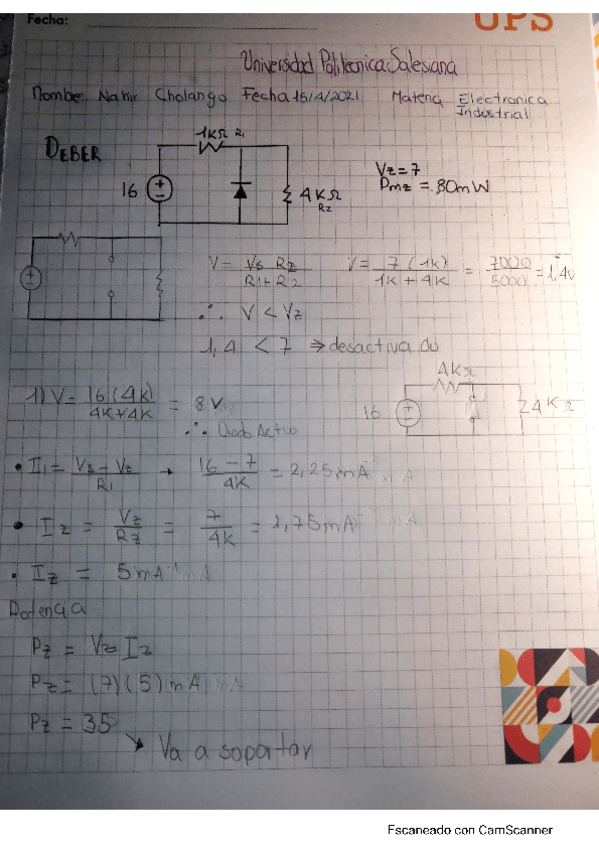 Fecha:
UPS
Universidad Politecnica Salesiana
Nombe Nahir Cholango Fecha 15/4/2021 Materia Electronica
Industrial
DEBER
1KΩ R1
16
4KΩ
R2
Vz=7
Pmz = 80mW
V = Vs R2 / R1+R2 V = 7 (1K) / 1K + 4K = 7000 / 5000 = 1,4v
∴ V < Vz
1,4 < 7 ⇒ desactivado
4KΩ
16
4KΩ
1) V = 16(4K) / 4K+4K = 8 V
∴ Diodo Activo
• I1 = Vs - Vz / R1 → 16 - 7 / 4K = 2,25mA
• I2 = Vz / R2 = 7 / 4K = 1,75mA
• Iz = 5mA
Potencia
Pz = Vz Iz
Pz = (7)(5)mA
Pz = 35
→ Va a soportar
Escaneado con CamScanner